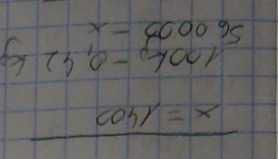 x = 1400
100kg – 0,42 kg
560000 – x